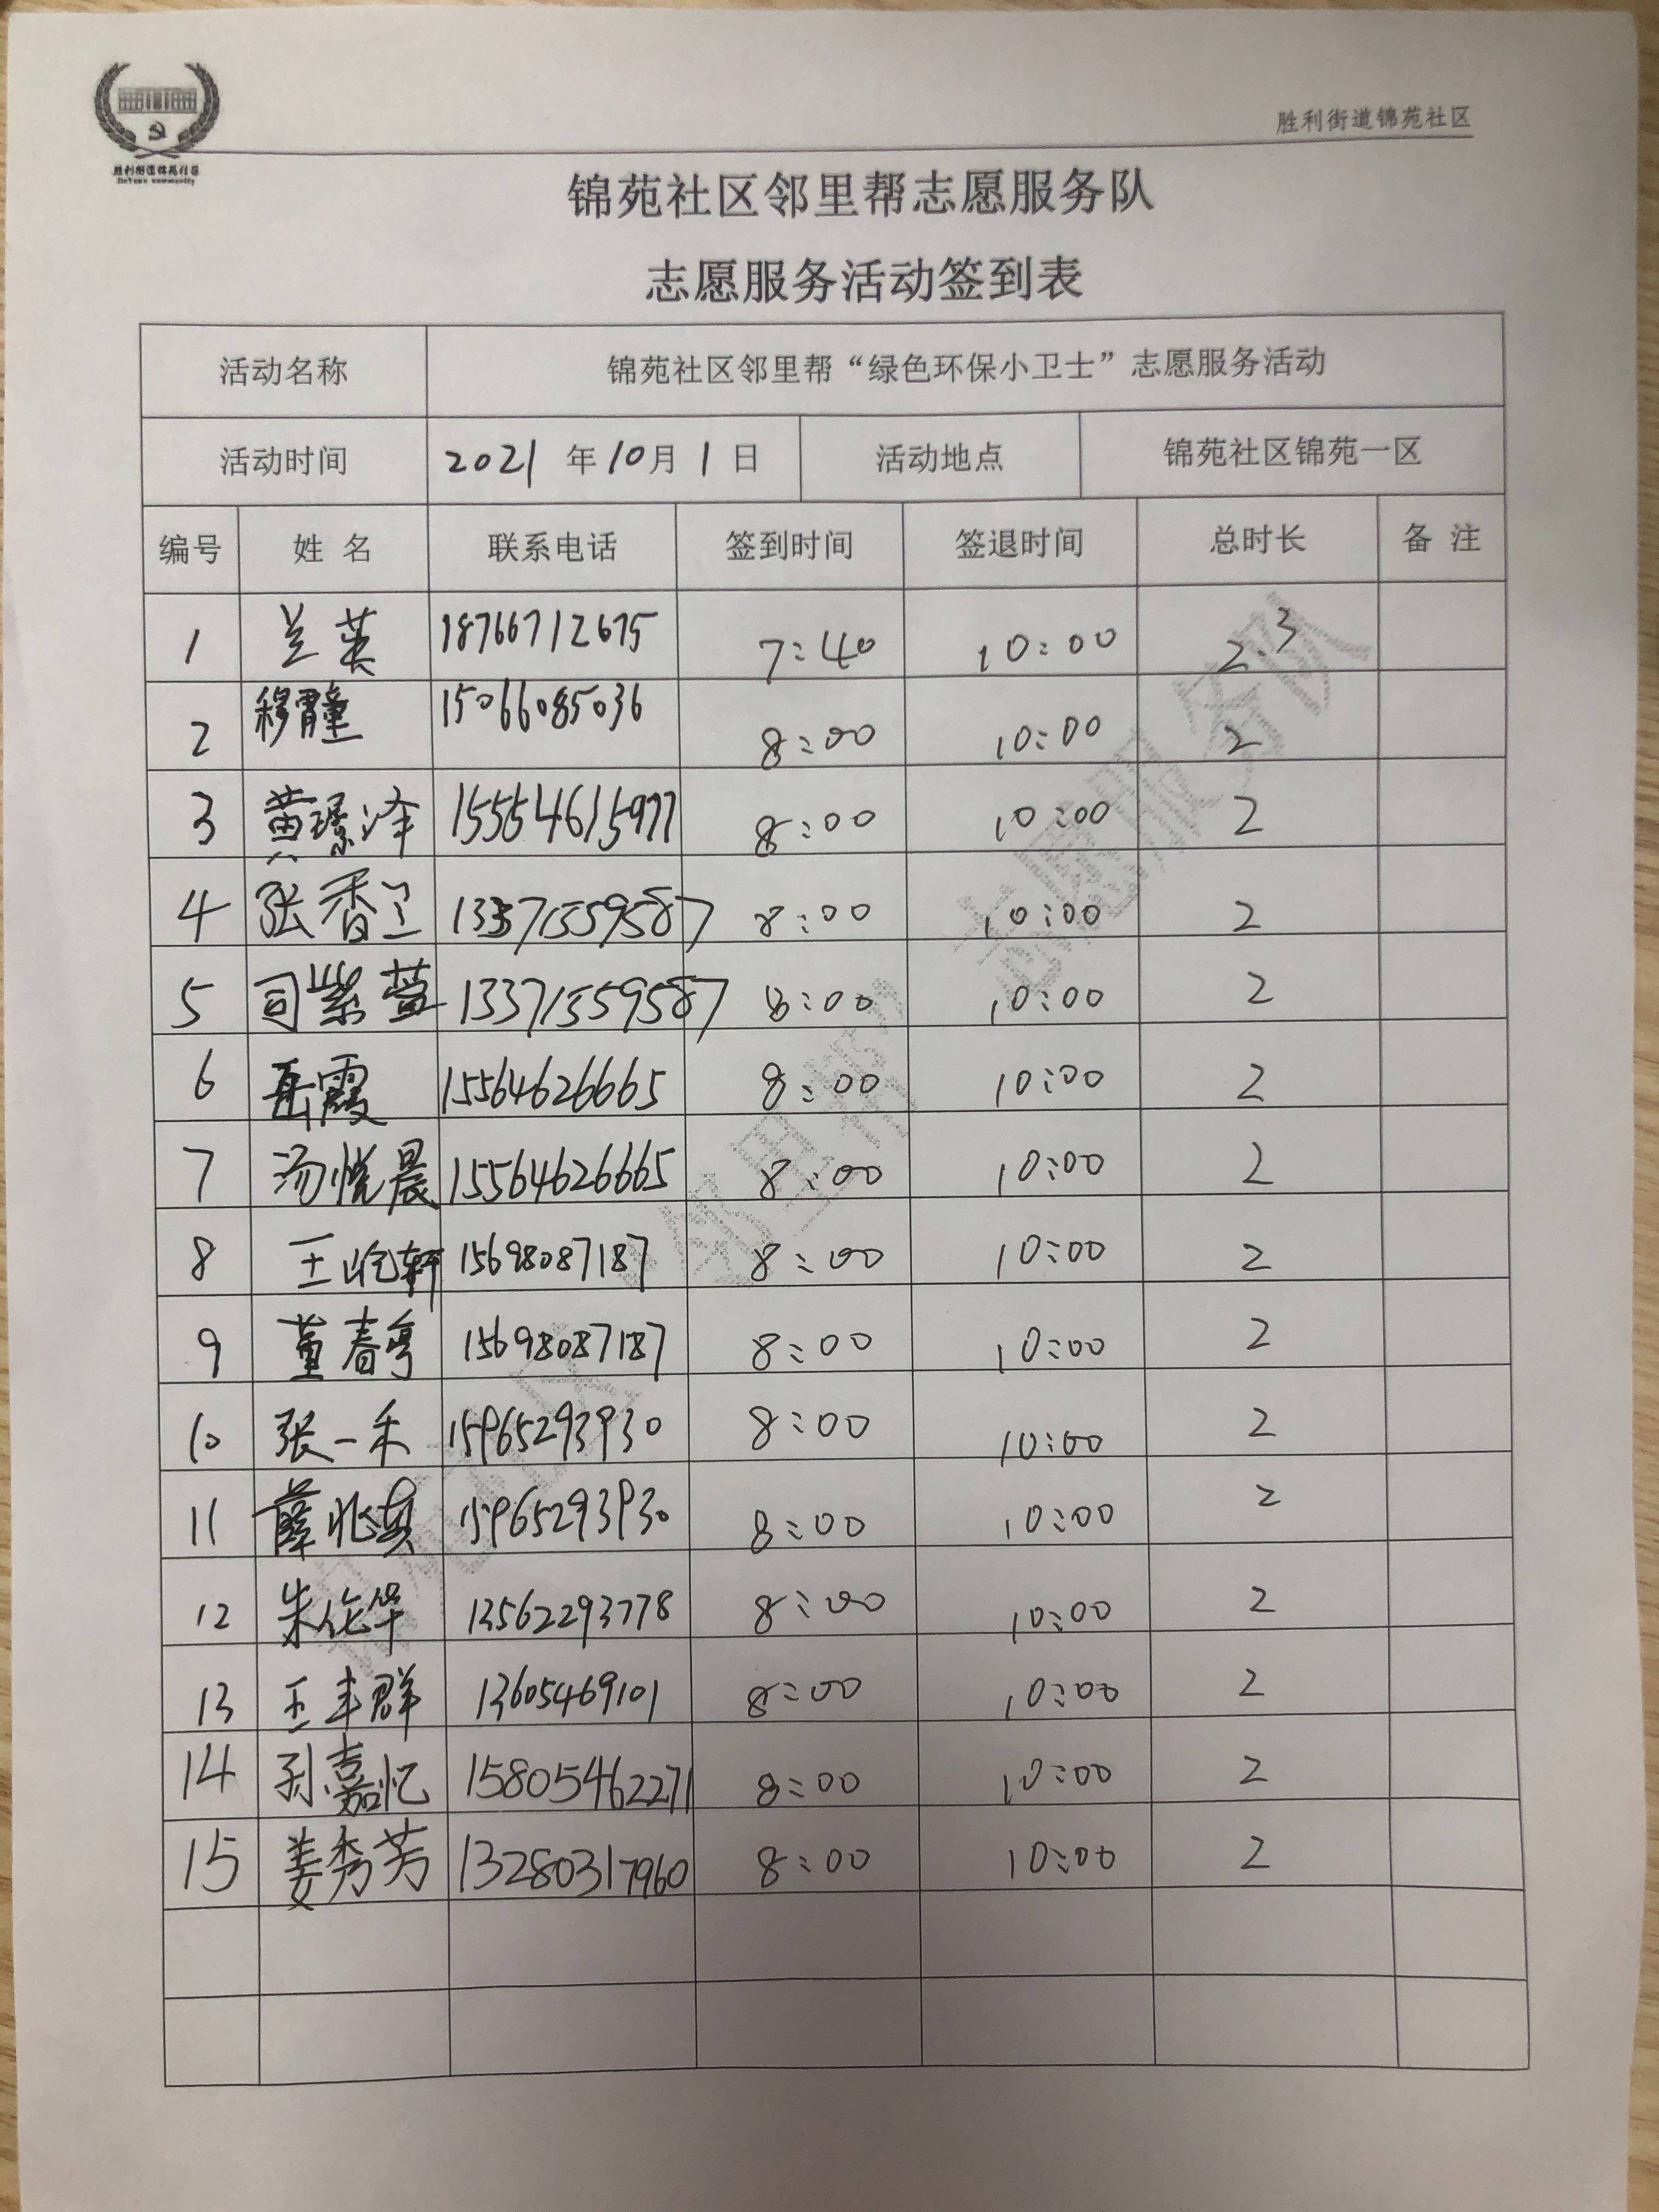 胜利街道锦苑社区
胜利街道锦苑社区
JinYuan community
锦苑社区邻里帮志愿服务队
志愿服务活动签到表
活动名称 锦苑社区邻里帮“绿色环保小卫士”志愿服务活动
活动时间 2021 年 10 月 1 日 活动地点 锦苑社区锦苑一区
编号 姓 名 联系电话 签到时间 签退时间 总时长 备 注
1 兰英 18766712675 7:40 10:00 2.3
2 穆霄童 15066085036 8:00 10:00 2
3 黄璟泽 15554615977 8:00 10:00 2
4 张香兰 13371559587 8:00 10:00 2
5 司紫萱 13371559587 8:00 10:00 2
6 岳霞 15564626665 8:00 10:00 2
7 汤悦晨 15564626665 8:00 10:00 2
8 王屹轩 15698087187 8:00 10:00 2
9 董春亭 15698087187 8:00 10:00 2
10 张一禾 15965293930 8:00 10:00 2
11 薛兆真 15965293930 8:00 10:00 2
12 朱伦华 13562293778 8:00 10:00 2
13 王丰群 13605469101 8:00 10:00 2
14 孙嘉忆 15805462271 8:00 10:00 2
15 姜秀芳 13280317960 8:00 10:00 2
锦苑社区“邻里帮”志愿服务队